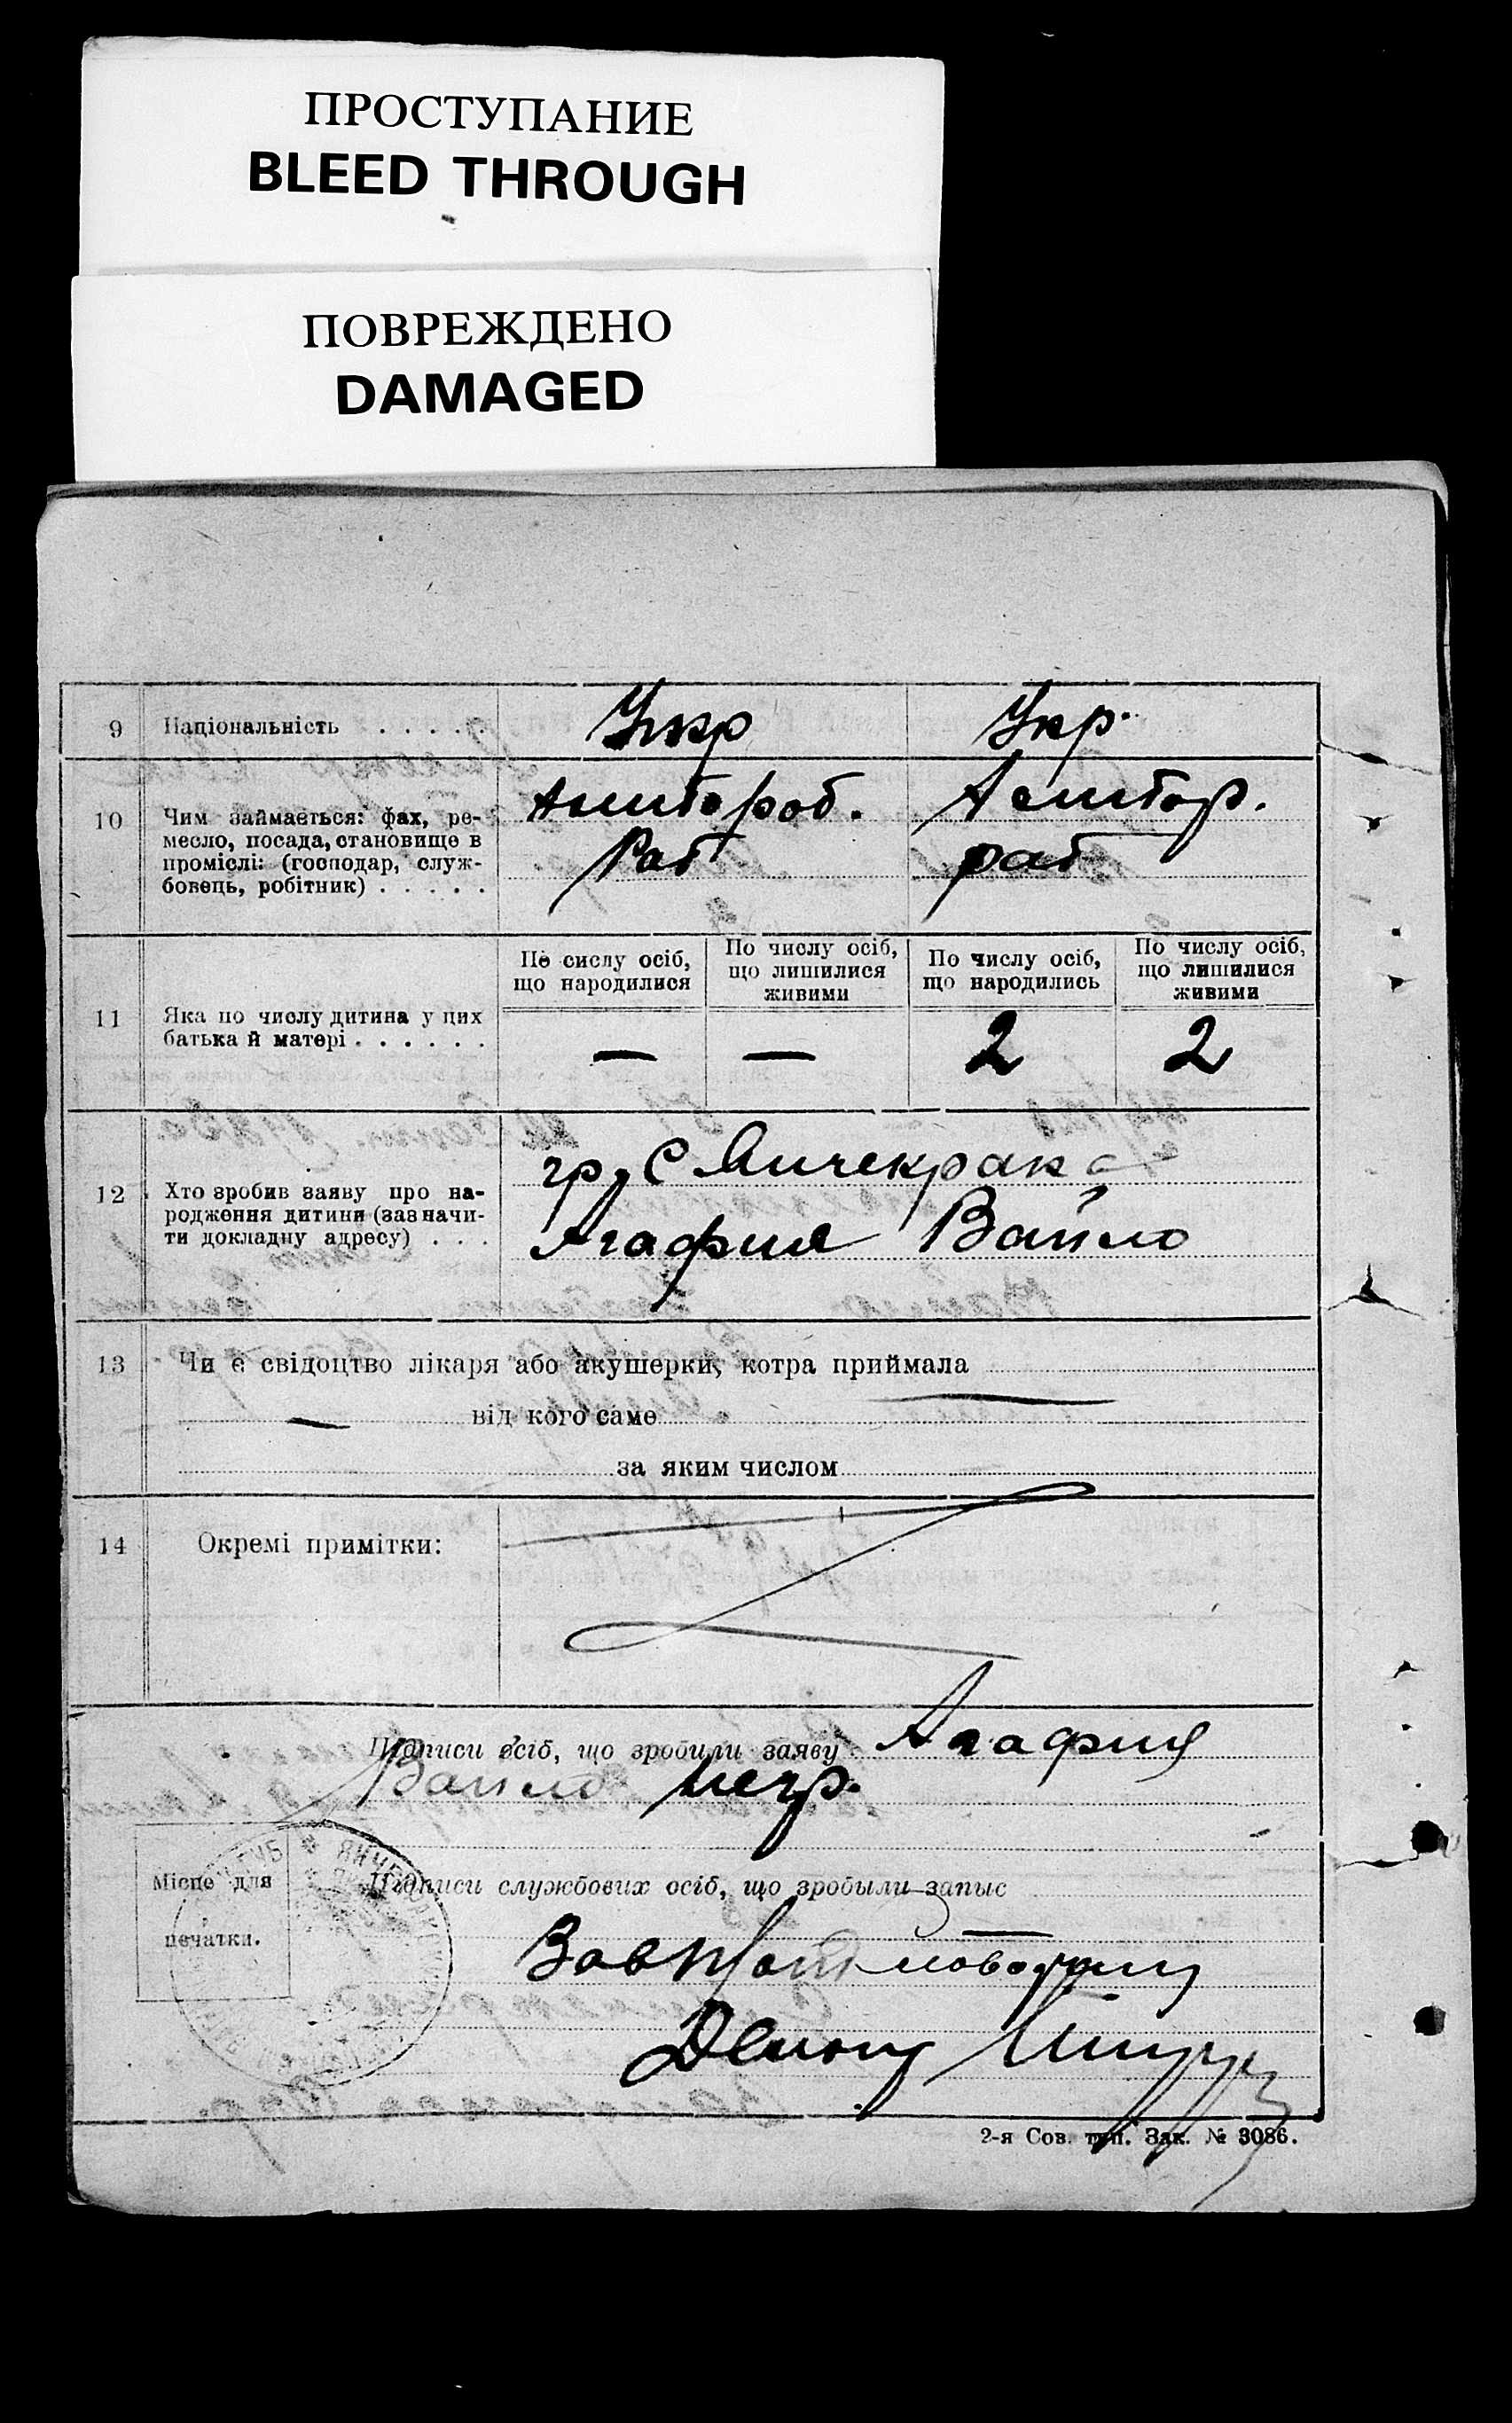 ПРОСТУПАНИЕ
BLEED THROUGH
ПОВРЕЖДЕНО
DAMAGED
9 Національність . . . . . Укр Укр.
10 Чим займається: фах, ре-
месло, посада, становище в
проміслі: (господар, служ-
бовець, робітник) . . . . .
Раб раб
11 Яка по числу дитина у цих
батька й матері . . . . . .
По сислу осіб,
що народилися
По числу осіб,
що лишилися
живими
По числу осіб,
що народились
По числу осіб,
що лишилися
живими
— — 2 2
12 Хто зробив заяву про на-
родження дитини (зазначи-
ти докладну адресу) . . .
гр. с Янчекрака
Агафия Вайло
13 Чи є свідоцтво лікаря або акушерки, котра приймала
— від кого саме —
за яким числом
14 Окремі примітки:
Підписи осіб, що зробили заяву Агафия
Вайло негр.
Місце для
печатки.
Підписи службових осіб, що зробыли запыс
2-я Сов. тип. Зак. № 3086.